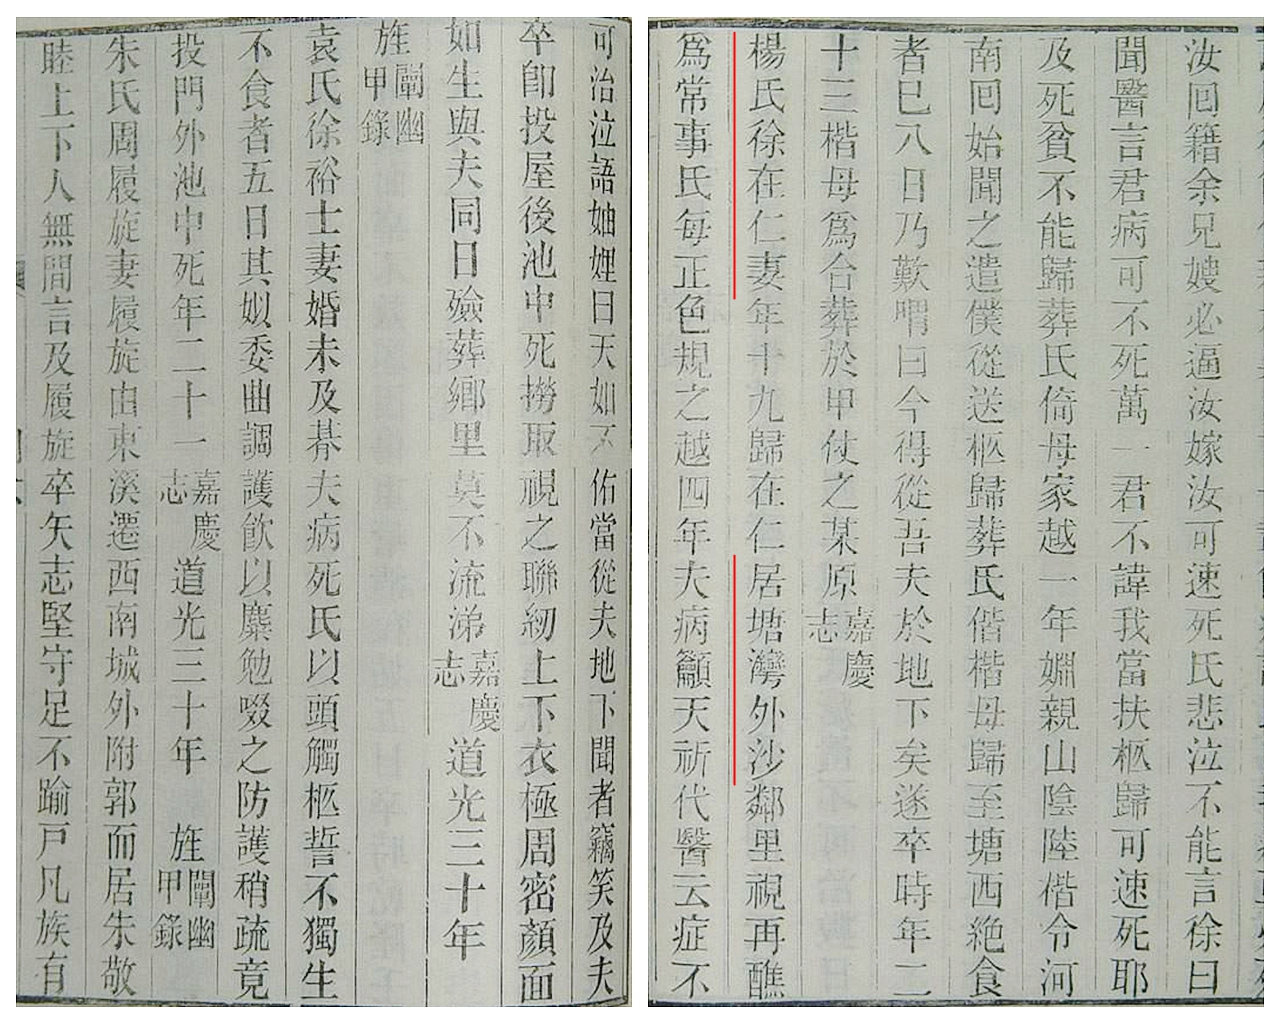 汝回籍余兄嫂必逼汝嫁汝可速死氏悲泣不能言徐曰
聞醫言君病可不死萬一君不諱我當扶柩歸可速死耶
及死貧不能歸葬氏倚母家越一年婣親山陰陸楷令河
南回始聞之遣僕從送柩歸葬氏偕楷母歸至塘西絶食
者已八日乃歎喟曰今得從吾夫於地下矣遂卒時年二
十三楷母爲合葬於甲仗之某原嘉慶志
楊氏徐在仁妻年十九歸在仁居塘灣外沙鄰里視再醮
爲常事氏每正色規之越四年夫病籲天祈代醫云症不
可治泣語妯娌曰天如不佑當從夫地下聞者竊笑及夫
卒卽投屋後池中死撈取視之聯紉上下衣極周密顏面
如生與夫同日殮葬鄉里莫不流涕嘉慶志道光三十年
旌闡幽甲錄
袁氏徐裕士妻婚未及朞夫病死氏以頭觸柩誓不獨生
不食者五日其姒委曲調護飲以麋勉啜之防護稍疏竟
投門外池中死年二十一嘉慶志道光三十年 旌闡幽甲錄
朱氏周履旋妻履旋由東溪遷西南城外附郭而居朱敬
睦上下人無間言及履旋卒矢志堅守足不踰戸凡族有